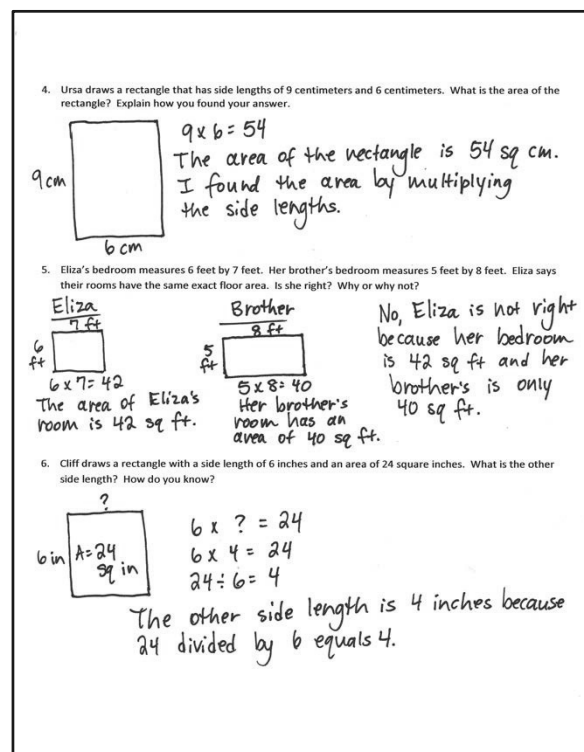 4. Ursa draws a rectangle that has side lengths of 9 centimeters and 6 centimeters. What is the area of the
rectangle? Explain how you found your answer.
9 x 6 = 54
The area of the rectangle is 54 sq cm.
9 cm
I found the area by multiplying
the side lengths.
6 cm
5. Eliza's bedroom measures 6 feet by 7 feet. Her brother's bedroom measures 5 feet by 8 feet. Eliza says
their rooms have the same exact floor area. Is she right? Why or why not?
Eliza
7 ft
6
ft
6 x 7 = 42
The area of Eliza's
room is 42 sq ft.
Brother
8 ft
5
ft
5 x 8 = 40
Her brother's
room has an
area of 40 sq ft.
No, Eliza is not right
because her bedroom
is 42 sq ft and her
brother's is only
40 sq ft.
6. Cliff draws a rectangle with a side length of 6 inches and an area of 24 square inches. What is the other
side length? How do you know?
?
6 in
A = 24
sq in
6 x ? = 24
6 x 4 = 24
24 ÷ 6 = 4
The other side length is 4 inches because
24 divided by 6 equals 4.